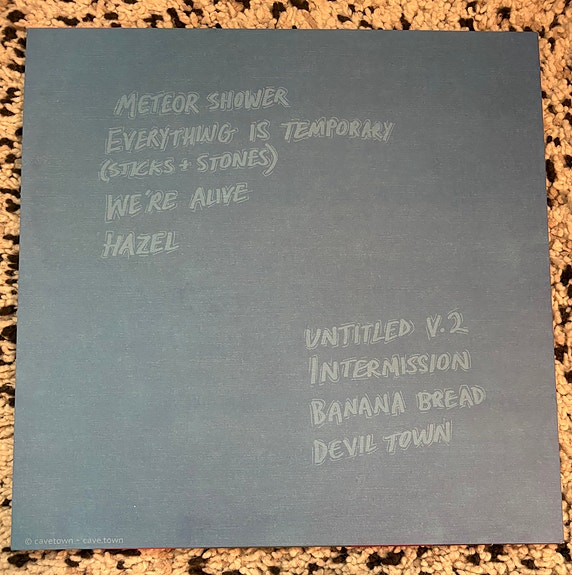 METEOR SHOWER
EVERYTHING IS TEMPORARY
(STICKS + STONES)
WE'RE ALIVE
HAZEL
UNTITLED V.2
INTERMISSION
BANANA BREAD
DEVIL TOWN
© cavetown - cave.town